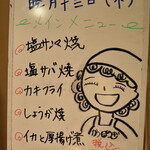 月十三日(木)
メインメニュー
塩サンマ焼
塩サバ焼
カキフライ
しょうが焼
イカと厚揚げ煮
かっぽうぎ